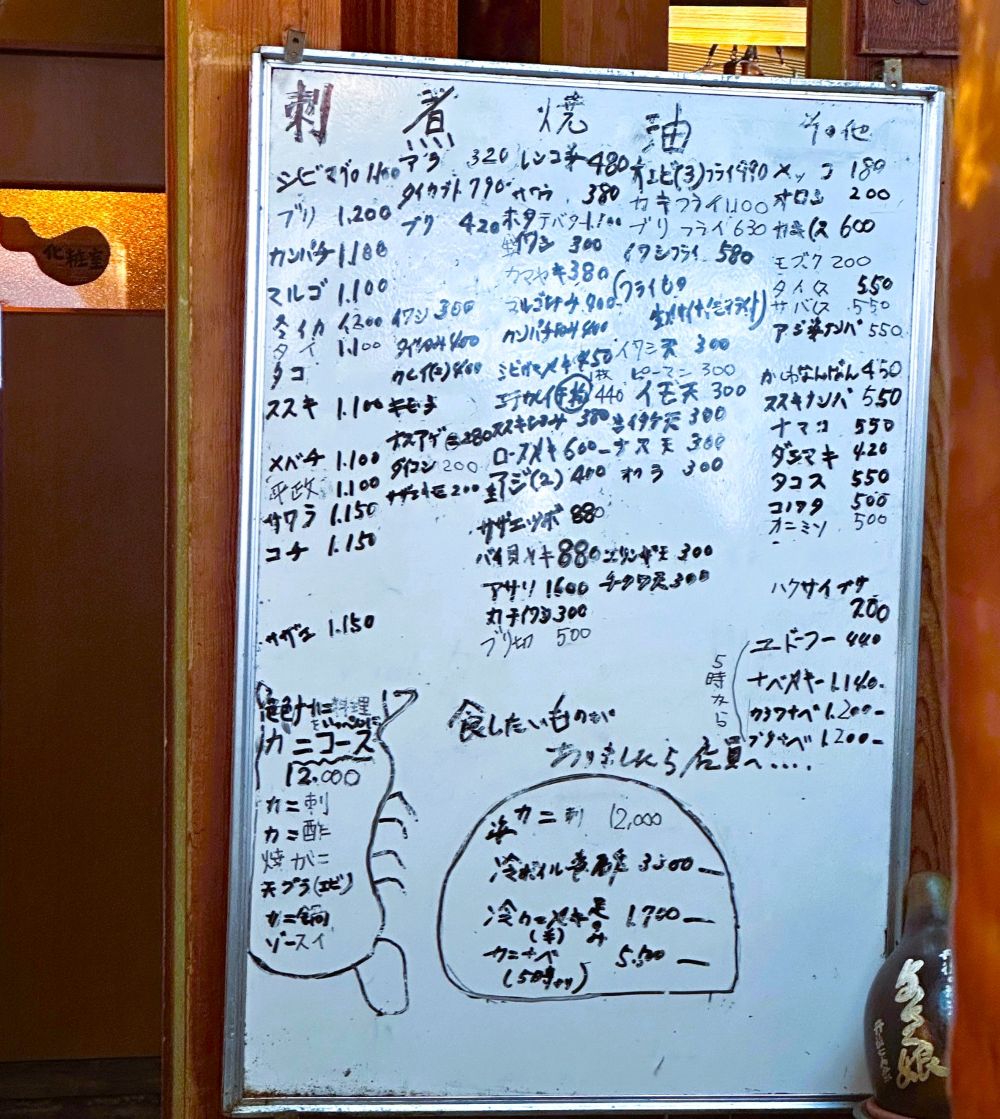 化粧室
刺
シビマグロ 1.100
ブリ 1.200
カンパチ 1.100
マルゴ 1.100
イカ 1200
タイ 1.100
タコ
ススキ 1.100
メバチ 1.100
平政 1.100
サワラ 1.150
コチ 1.150
サザエ 1.150
煮
アラ 320
タイカブト 790
ブリ 420
イワシ 300
400
カレイ(2) 400
キモ
ナスアゲ 280
ダイコン 200
200
焼
レンコチ 480
サワラ 380
ホタテバター 1.100
イワシ 300
カマヤキ 380
マルゴ 400
カンパチ 400
シビカマヤキ 450
エテカレイ 1枚 440
ススキ 380
ロースヤキ 600
アジ(2) 400
サザエツボ 880
バイ貝ヤキ 880
アサリ 1600
カチイワシ 300
ブリ切 500
油
大エビ(3)フライ 990
カキフライ 1100
ブリフライ 630
イワシフライ 580
(フライもの
イワシ天 300
ピーマン 300
イモ天 300
シイタケ天 300
ナス天 300
オクラ 300
エリンギ天 300
チクワ天 300
その他
メッコ 180
オロシ 200
ス 600
モズク 200
タイス 550
サバス 550
アジ ナンバ 550
かしわなんばん 450
ススキナンバ 550
ナマコ 550
ダシマキ 420
タコス 550
コノワタ 500
カニミソ 500
ハクサイブタ
200
5時から
ユードーフー 440
ナベヤキー 1.140.
カシワナベ 1.200-
ブリナベ 1.200-
カニ料理
カニコース
12.000
カニ刺
カニ酢
焼がに
天プラ(エビ)
カニ鍋
ゾースイ
食したいものが
ありましたら店員へ....
カニ刺 12,000
冷ボイル 3300
冷カニヤキ足のみ 1.700
(半)
カニナベ 5.500
(5時から)
娘